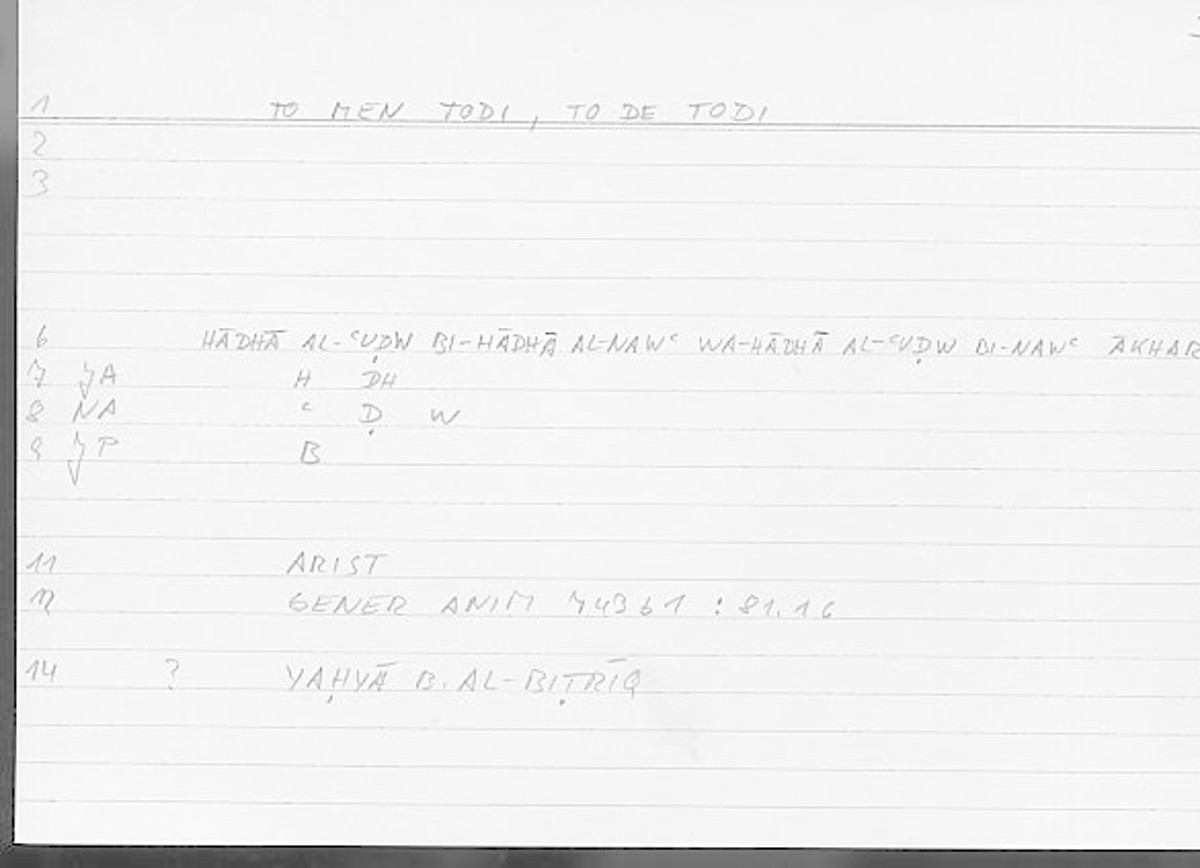 1 TO MEN TODI, TO DE TODI
2
3
6 HĀDHĀ AL-ʿUḌW BI-HĀDHĀ AL-NAWʿ WA-HĀDHĀ AL-ʿUḌW BI-NAWʿ ĀKHAR
7 JA H DH
8 NA ʿ Ḍ W
9 JP B
11 ARIST
12 GENER ANIM 743b1 : 81.16
14 ? YAḤYĀ B. AL-BIṬRĪQ